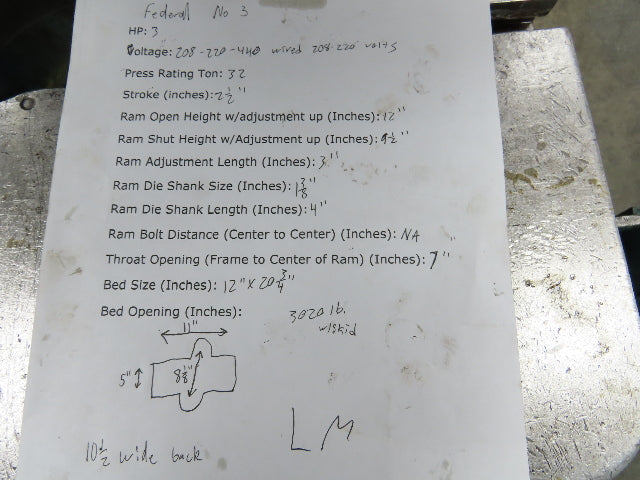 Federal No 3
HP: 3
Voltage: 208-220-440 wired 208-220 volts
Press Rating Ton: 32
Stroke (inches): 2 1/2"
Ram Open Height w/adjustment up (Inches): 12"
Ram Shut Height w/Adjustment up (Inches): 9 1/2"
Ram Adjustment Length (Inches): 3"
Ram Die Shank Size (Inches): 1 3/8"
Ram Die Shank Length (Inches): 4"
Ram Bolt Distance (Center to Center) (Inches): NA
Throat Opening (Frame to Center of Ram) (Inches): 7"
Bed Size (Inches): 12" x 20 3/4"
Bed Opening (Inches):
3020 lb.
w/skid
11"
5"
8 1/8"
LM
10 1/2 wide back